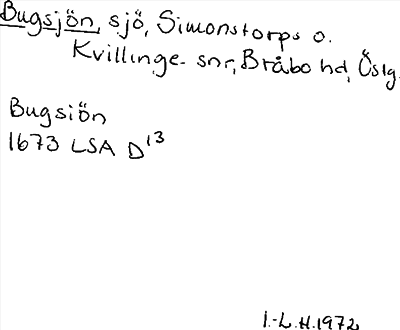 Bugsjön, sjö, Simonstorps o.
Kvillinge snr, Bråbo hd, Öslg.
Bugsiön
1673 LSA D¹³
I.-L.H.1972